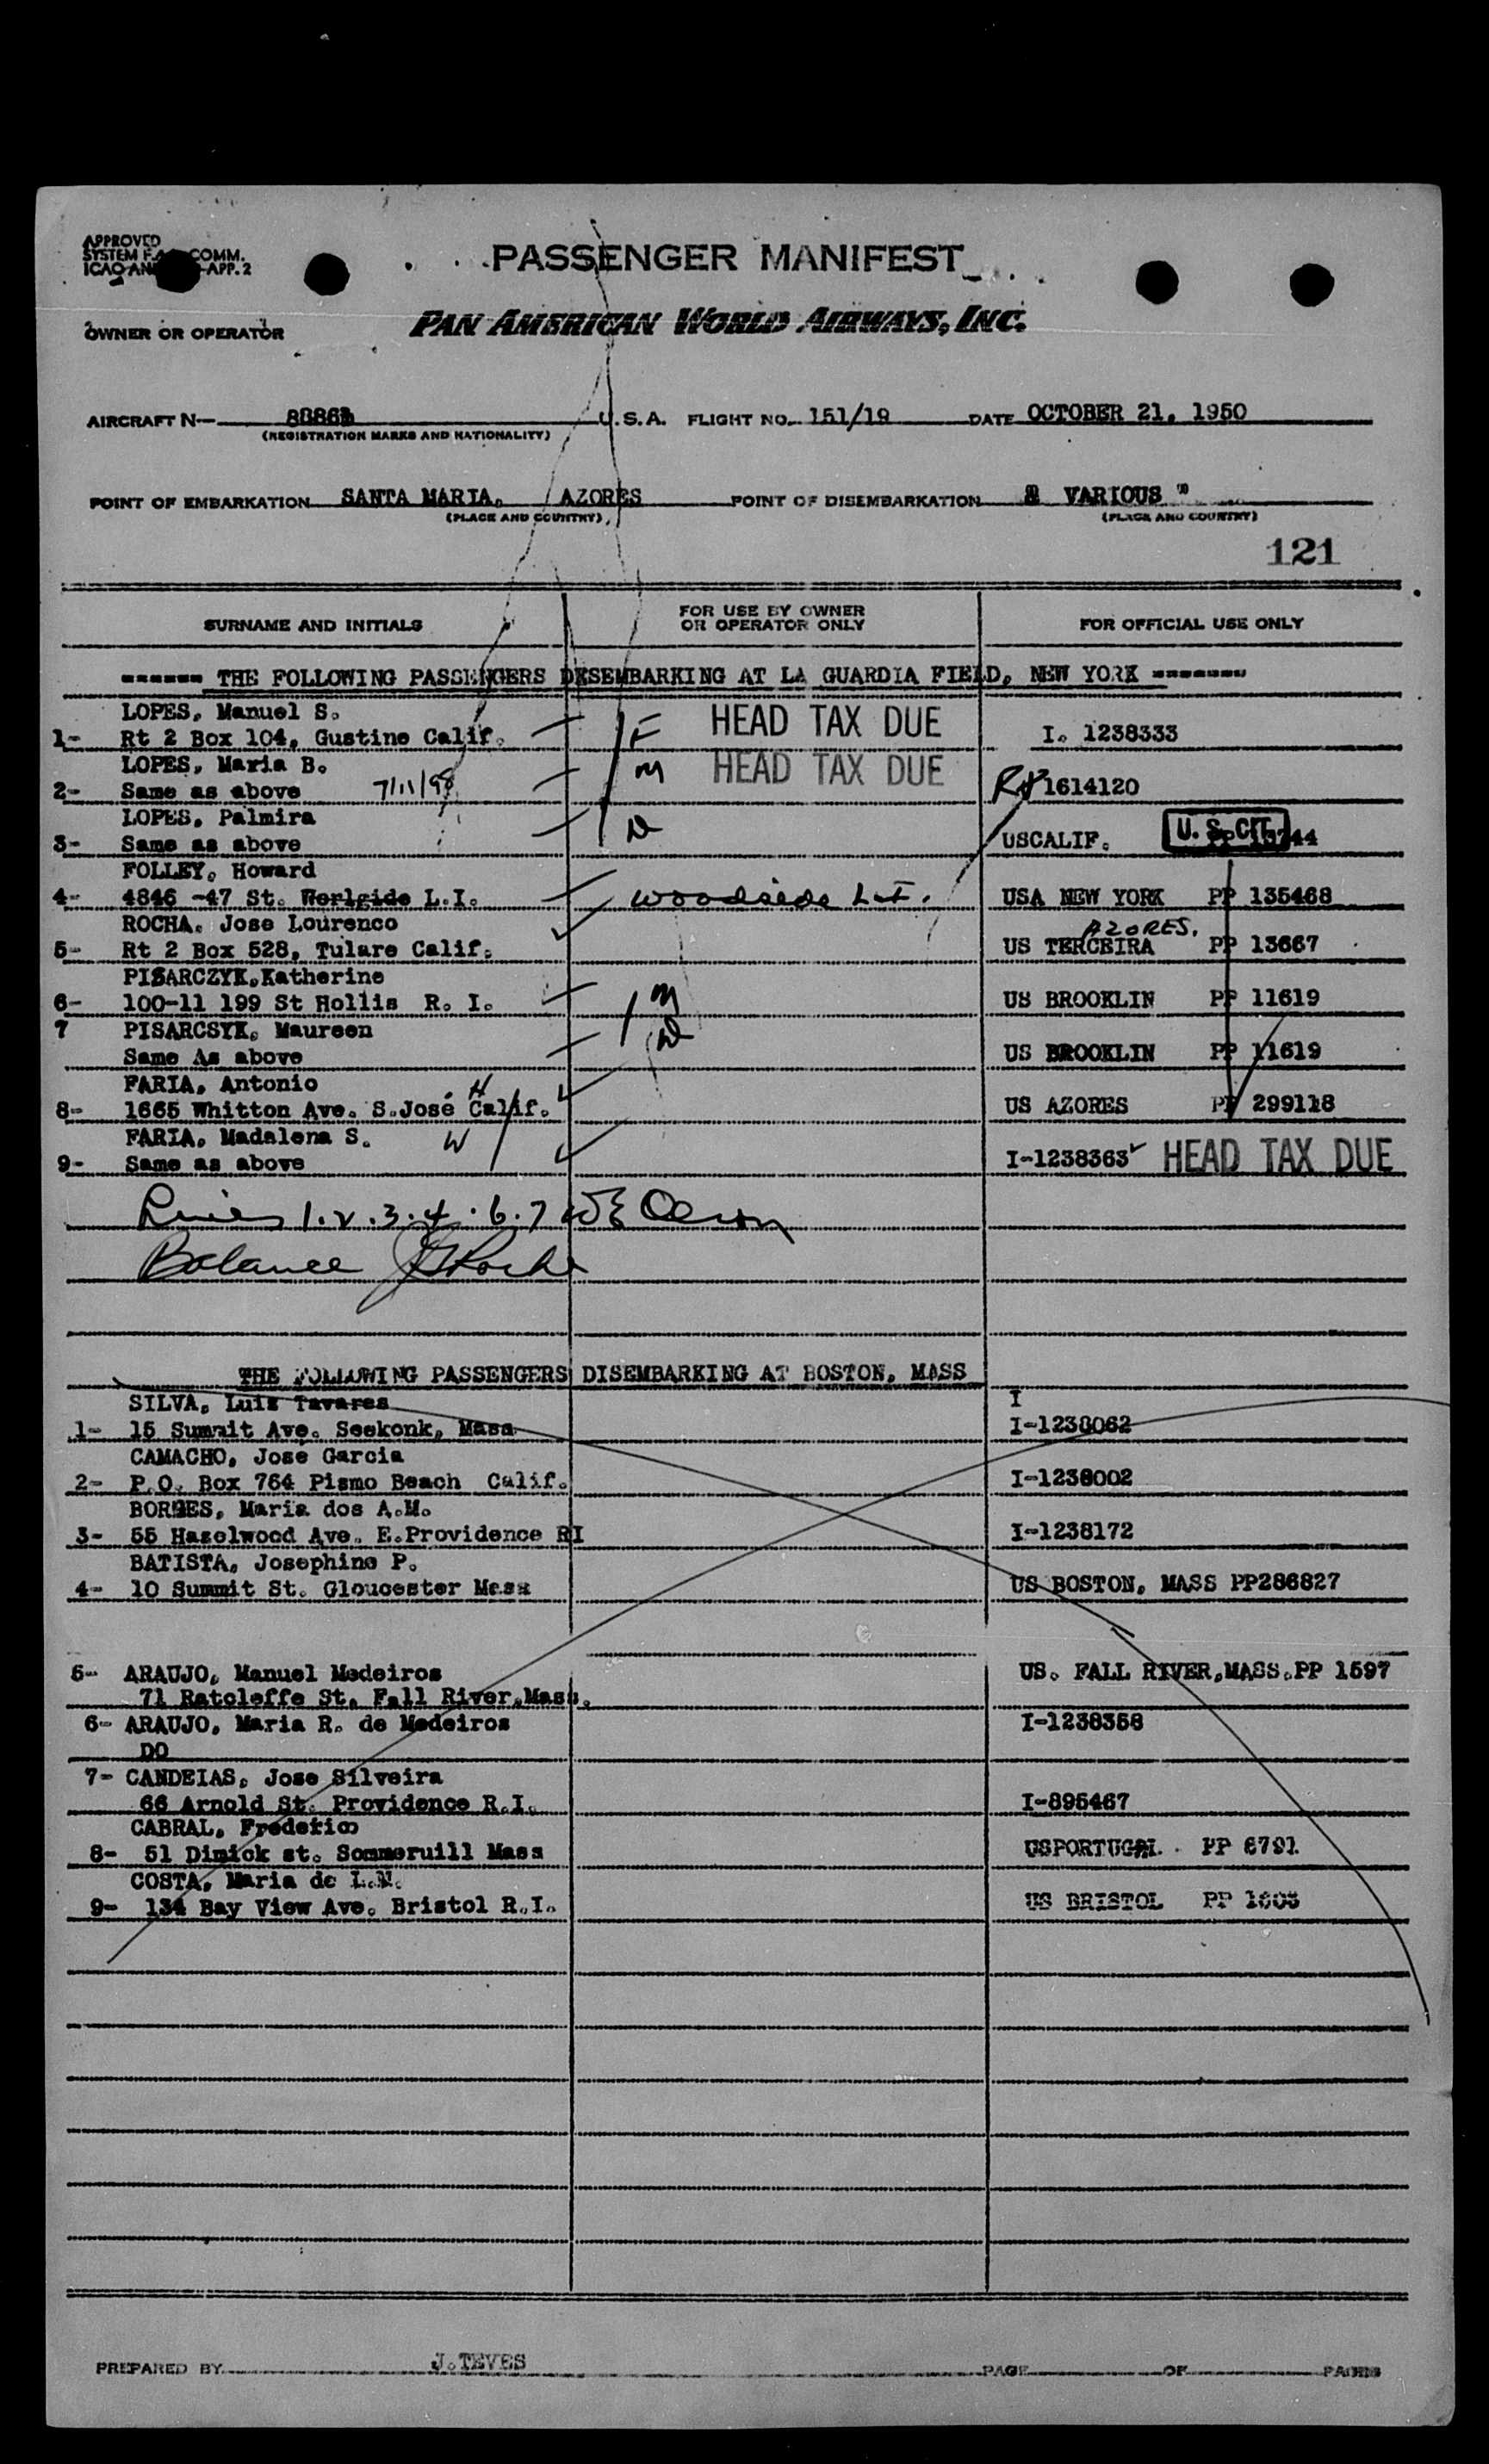 APPROVED
SYSTEM COMM.
ICAO APP. 2
PASSENGER MANIFEST
OWNER OR OPERATOR PAN AMERICAN WORLD AIRWAYS, INC.
AIRCRAFT N— U.S.A. FLIGHT NO. 151/19 DATE OCTOBER 21, 1950
(REGISTRATION MARKS AND NATIONALITY)
POINT OF EMBARKATION SANTA MARIA, AZORES POINT OF DISEMBARKATION VARIOUS "
(PLACE AND COUNTRY) (PLACE AND COUNTRY)
121
SURNAME AND INITIALS FOR USE BY OWNER OR OPERATOR ONLY FOR OFFICIAL USE ONLY
------ THE FOLLOWING PASSENGERS DESEMBARKING AT LA GUARDIA FIELD, NEW YORK -------
LOPES, Manuel S. F HEAD TAX DUE
1- Rt 2 Box 104, Gustine Calif. I. 1238333
LOPES, Maria B. M HEAD TAX DUE
2- Same as above 1614120
LOPES, Palmira D U. S. CIT.
3- Same as above USCALIF. PP 13744
FOLLEY, Howard
4- 4846 -47 St. L.I. Woodside L.I. USA NEW YORK PP 135468
ROCHA, Jose Lourenco AZORES.
5- Rt 2 Box 528, Tulare Calif. US TERCEIRA PP 13667
PISARCZYK, Katherine M
6- 100-11 199 St Hollis R. I. US BROOKLIN PP 11619
7 PISARCSYK, Maureen D
Same As above US BROOKLIN PP 11619
FARIA, Antonio H
8- 1665 Whitton Ave. S.José Calif. US AZORES PP 299118
FARIA, Madalena S. W
9- Same as above I-1238363 HEAD TAX DUE
Lines 1.2.3.4.6.7 WE Olson
Balance Roche
THE FOLLOWING PASSENGERS DISEMBARKING AT BOSTON, MASS
SILVA, Luiz Tavares I
1- 15 Summit Ave. Seekonk, Mass I-1238062
CAMACHO, Jose Garcia
2- P.O. Box 764 Pismo Beach Calif. I-1238002
BORGES, Maria dos A.M.
3- 55 Hazelwood Ave. E.Providence RI I-1238172
BATISTA, Josephine P.
4- 10 Summit St. Gloucester Mass US BOSTON, MASS PP286827
5- ARAUJO, Manuel Medeiros US. FALL RIVER,MASS.PP 1597
71 Ratcleffe St. Fall River,Mass.
6- ARAUJO, Maria R. de Medeiros I-1238358
DO
7- CANDEIAS, Jose Silveira
66 Arnold St. Providence R.I. I-895467
CABRAL, Frederico
8- 51 Dimick st. Sommeruill Mass USPORTUGAL PP 6791
COSTA, Maria de L.N.
9- 134 Bay View Ave. Bristol R.I. US BRISTOL PP
PREPARED BY J.TEVES PAGE OF PAGES